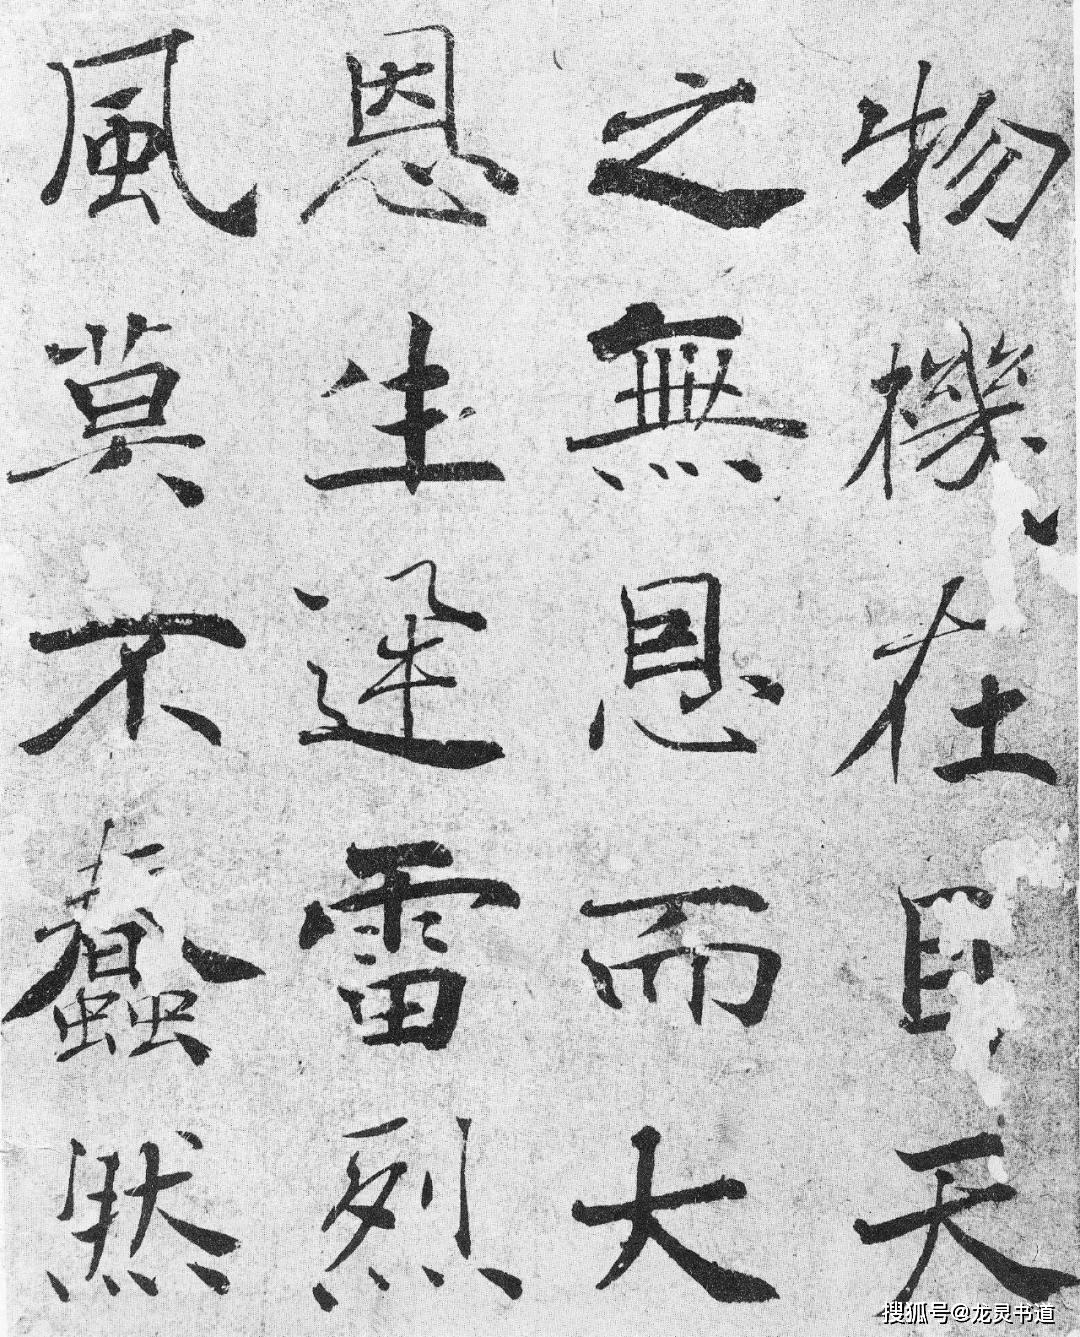 物機在目天
之無恩而大
恩生迅雷烈
風莫不蠢然
搜狐号@龙灵书道